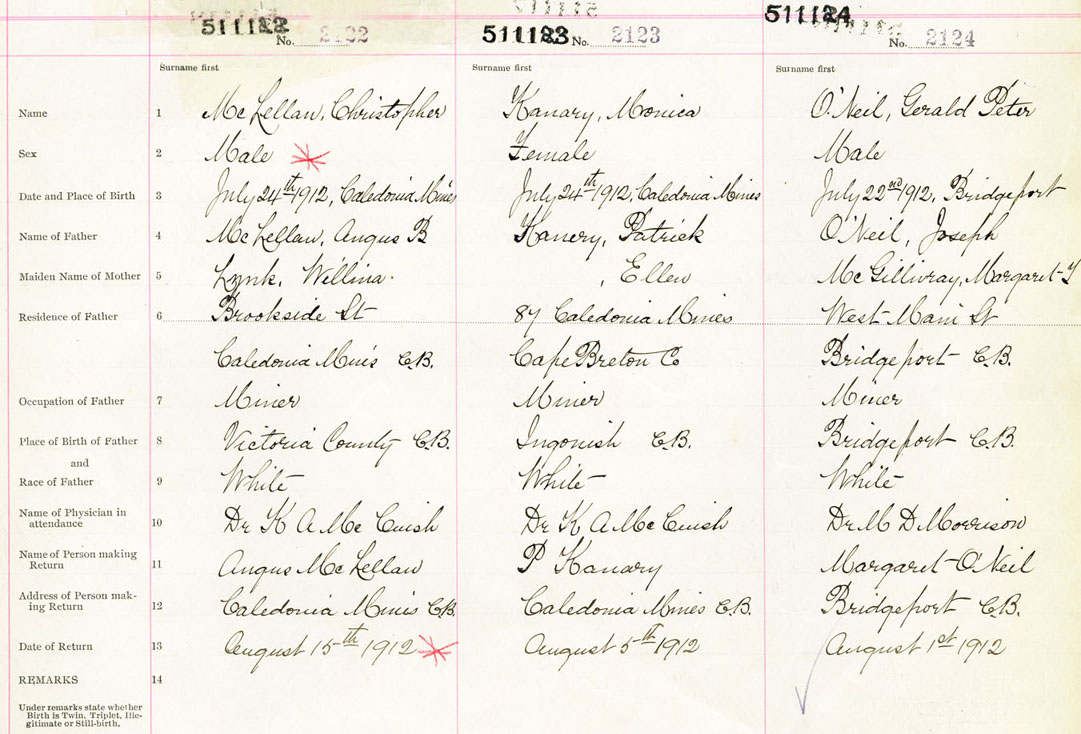 511122 No. 2122 511123 No. 2123 511124 No. 2124
Surname first Surname first Surname first
Name 1 McLellan, Christopher Kanary, Monica O'Neil, Gerald Peter
Sex 2 Male Female Male
Date and Place of Birth 3 July 24th 1912, Caledonia Mines July 24th 1912, Caledonia Mines July 22nd 1912, Bridgeport
Name of Father 4 McLellan, Angus B Kanery, Patrick O'Neil, Joseph
Maiden Name of Mother 5 Lynk, Willina. , Ellen McGillivray, Margaret
Residence of Father 6 Brookside St 87 Caledonia Mines West Main St
Caledonia Mines C.B. Cape Breton Co Bridgeport C.B.
Occupation of Father 7 Miner Miner Miner
Place of Birth of Father 8 Victoria County C.B. Ingonish C.B. Bridgeport C.B.
and
Race of Father 9 White White White
Name of Physician in
attendance 10 Dr K A McCuish Dr K A McCuish Dr M D Morrison
Name of Person making
Return 11 Angus McLellan P Kanary Margaret O'Neil
Address of Person mak-
ing Return 12 Caledonia Mines C.B. Caledonia Mines C.B. Bridgeport C.B.
Date of Return 13 August 15th 1912 August 5th 1912 August 1st 1912
REMARKS 14
Under remarks state whether
Birth is Twin, Triplet, Ille-
gitimate or Still-birth.